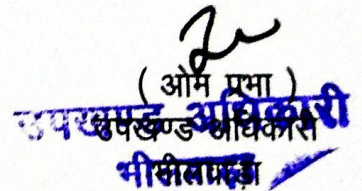 ( ओम प्रभा )
उपखण्ड अधिकारी
उपखण्ड अधिकारी
भीलवाड़ा